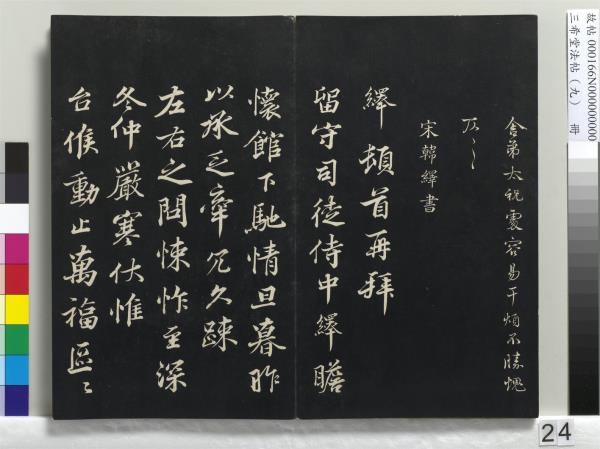 舍弟太祝處容易干煩不勝愧
仄〻
宋韓繹書
繹頓首再拜
留守司徒侍中繹瞻
懷館下馳情旦暮昨
以承乏牽冗久疎
左右之問悚怍至深
冬仲嚴寒伏惟
台候動止萬福區〻
故帖 000166N000000000
三希堂法帖(九) 冊
24